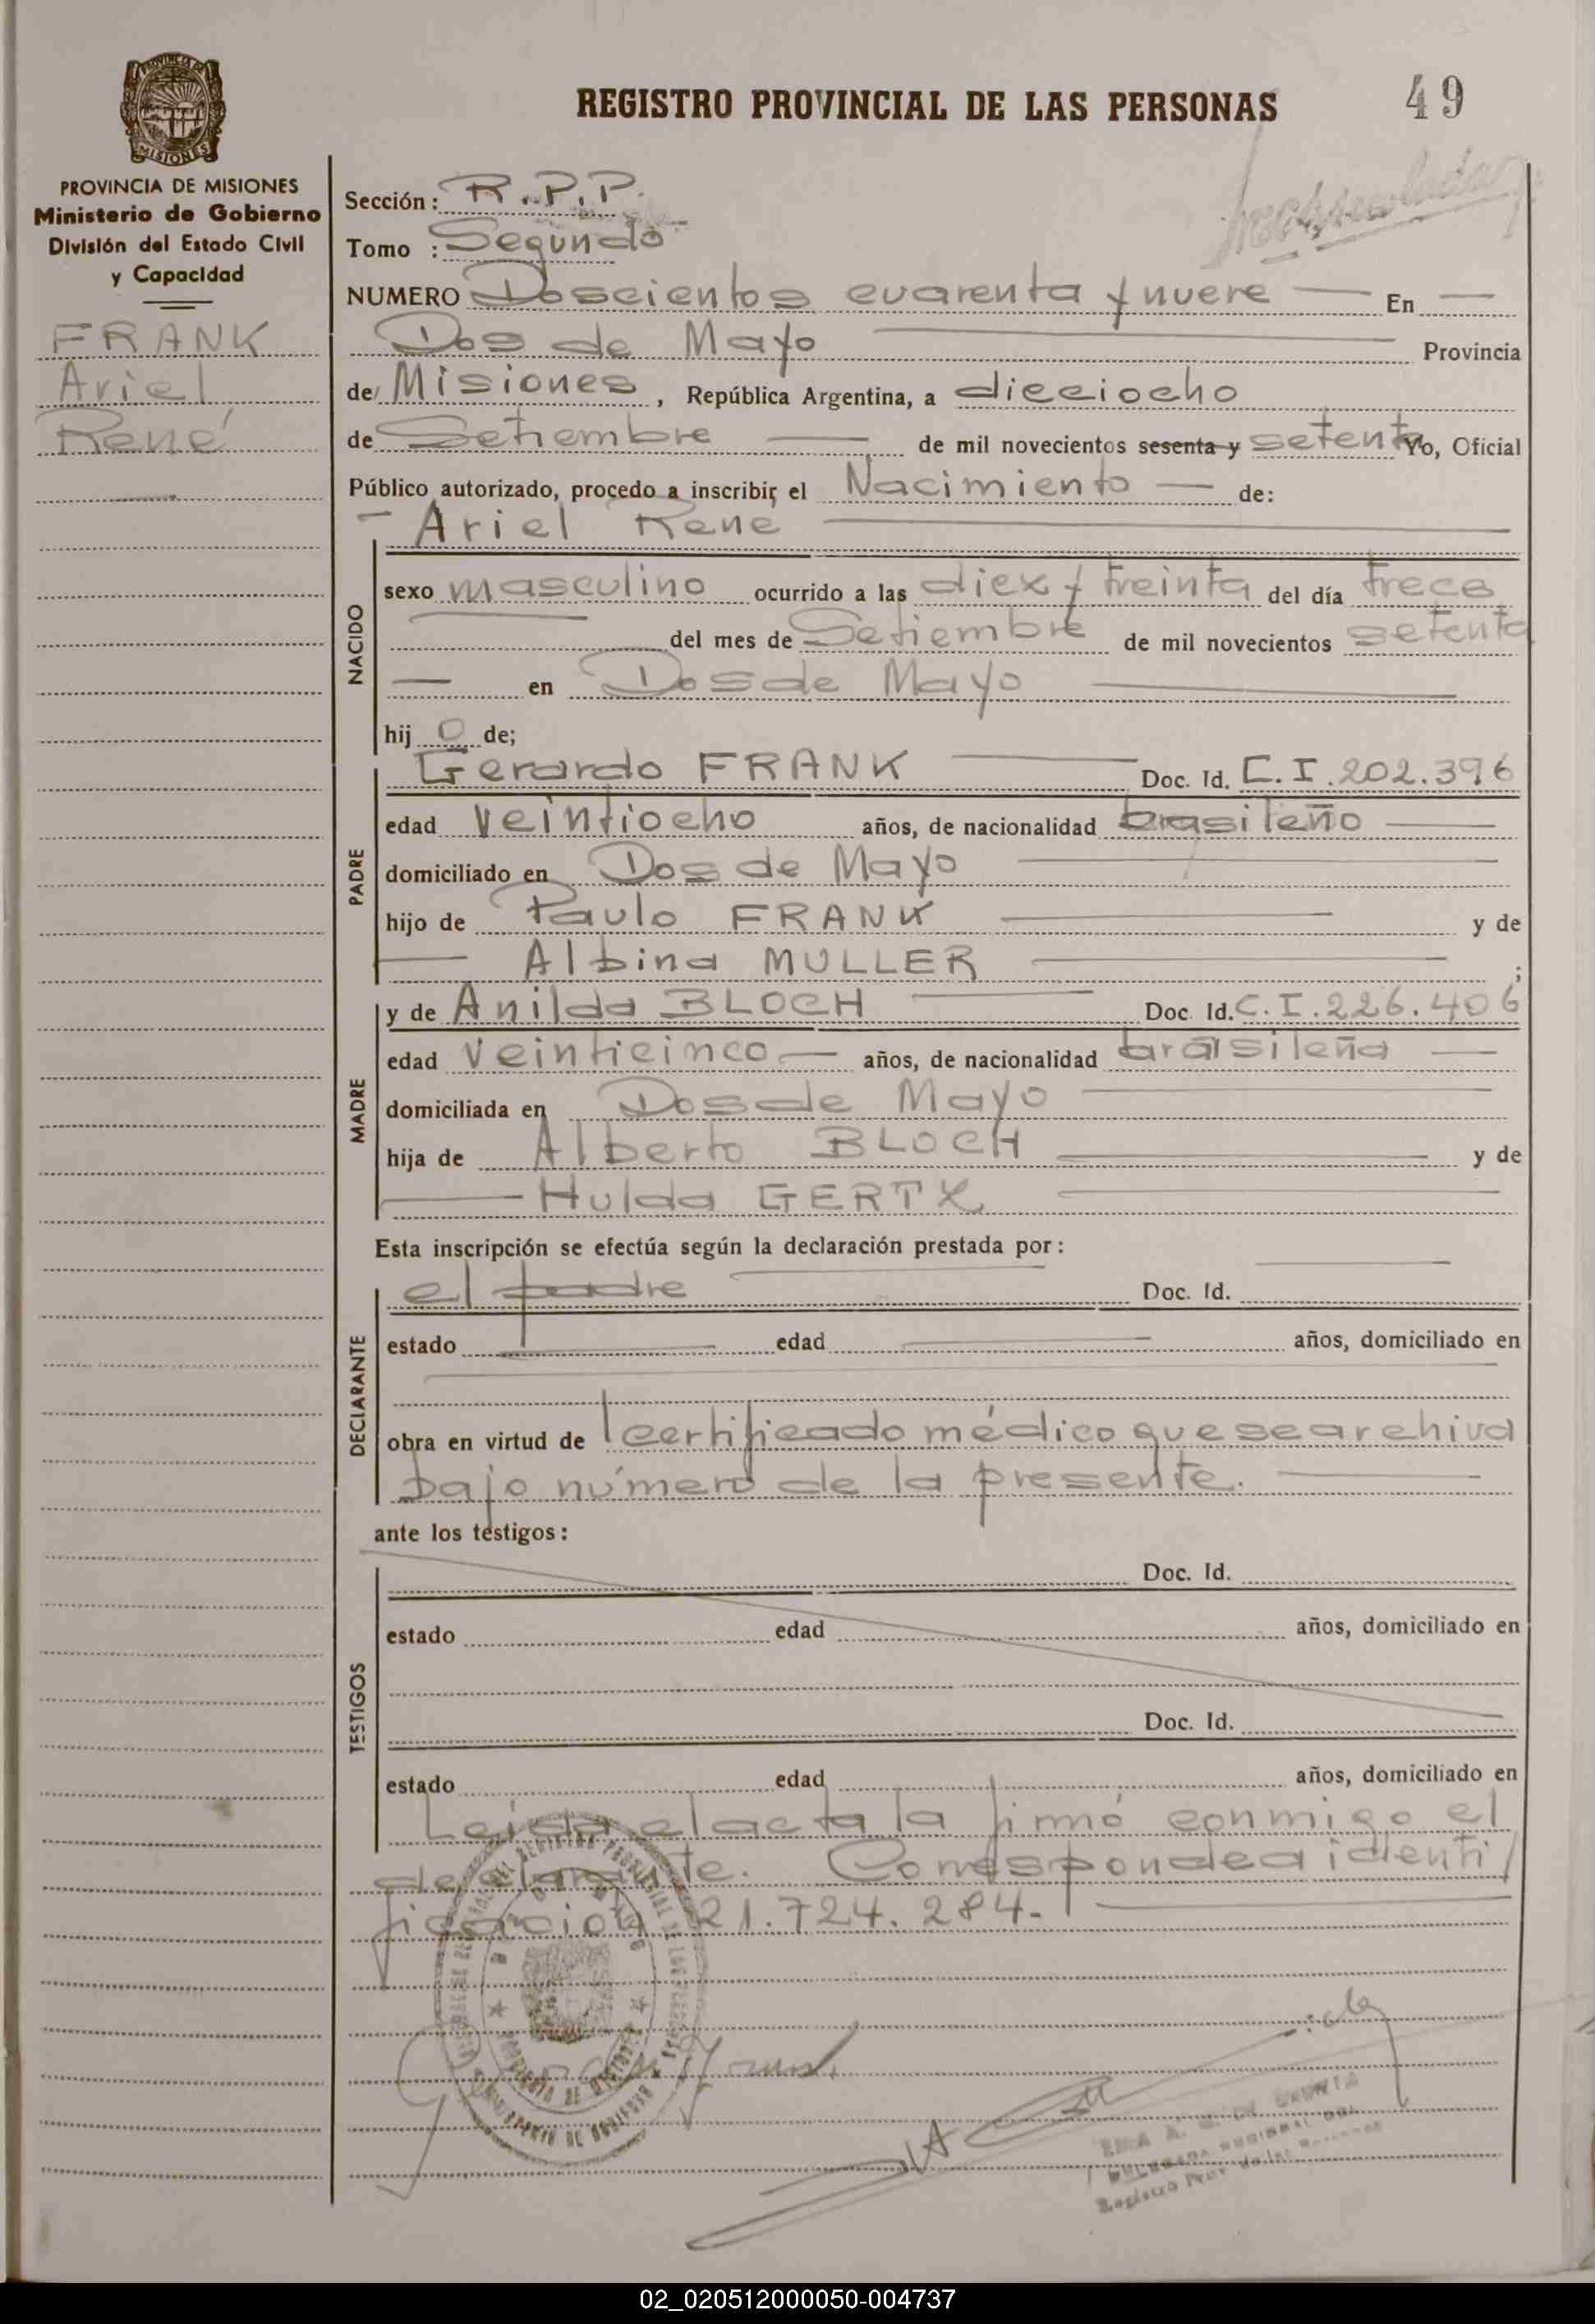 REGISTRO PROVINCIAL DE LAS PERSONAS
49
PROVINCIA DE
MISIONES
PROVINCIA DE MISIONES
Ministerio de Gobierno
División del Estado Civil
y Capacidad
FRANK
Ariel
René
Sección: R.P.P.
Tomo : Segundo
NUMERO Doscientos cuarenta y nueve — En —
Dos de Mayo Provincia
de Misiones, República Argentina, a dieciocho
de Setiembre — de mil novecientos sesenta y setenta Yo, Oficial
Público autorizado, procedo a inscribir el Nacimiento — de:
— Ariel Rene
NACIDO
sexo masculino ocurrido a las diez y treinta del día trece
del mes de Setiembre de mil novecientos setenta
— en Dos de Mayo
hij o de;
PADRE
Gerardo FRANK — Doc. Id. C.I.202.396
edad veintiocho años, de nacionalidad brasileño —
domiciliado en Dos de Mayo
hijo de Paulo FRANK — y de
— Albina MULLER — ;
MADRE
y de Anilda BLOCH — Doc Id. C.I.226.406
edad veinticinco — años, de nacionalidad brasileña —
domiciliada en Dos de Mayo
hija de Alberto BLOCH — y de
— Hulda GERTZ
Esta inscripción se efectúa según la declaración prestada por:
DECLARANTE
el padre Doc. Id.
estado — edad — años, domiciliado en
obra en virtud de certificado médico que se archiva
bajo número de la presente.
ante los testigos:
TESTIGOS
Doc. Id.
estado edad años, domiciliado en
Doc. Id.
estado edad años, domiciliado en
Leida el acta la firmó conmigo el
declarante. Corresponde a identi/
ficación 21.724.284.-
02_020512000050-004737